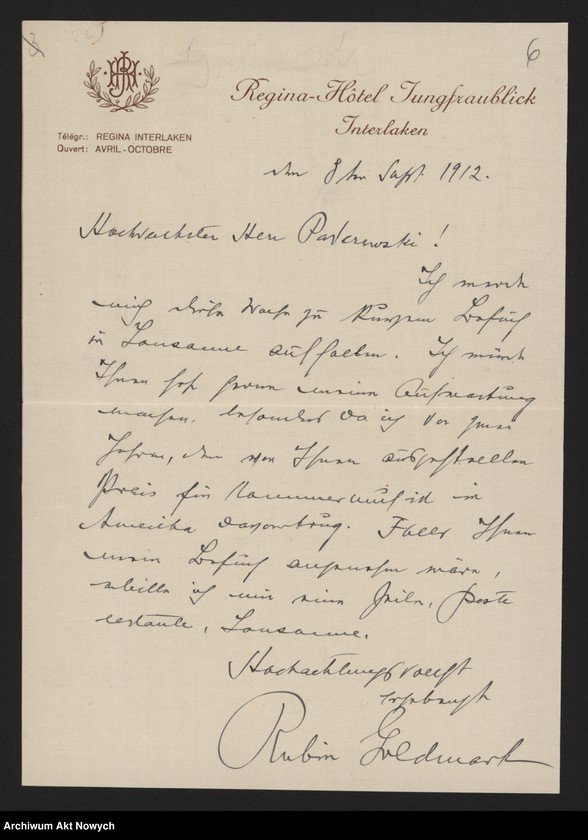 3
6
RJH
Regina-Hôtel Jungfraublick
Interlaken
Télégr.: REGINA INTERLAKEN
Ouvert: AVRIL-OCTOBRE
den 8ten Sept 1912.
Hochverehrter Herr Paderewski!
Ich werde
mich diese Woche zu kurzem Besuch
in Lausanne aufhalten. Ich würde
Ihnen sehr gerne meine Aufwartung
machen, besonders da ich vor zwei
Jahren, den von Ihnen ausgestellten
Preis für Kammermusik in
Amerika davontrug. Falls Ihnen
mein Besuch angenehm wäre,
erbitte ich mir eine Zeile, Poste
restante, Lausanne.
Hochachtungsvollst
ergebenst
Rubin Goldmark
Archiwum Akt Nowych